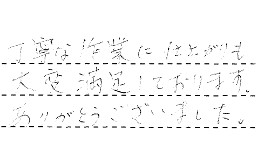 丁寧な作業に仕上がりも
大変満足しております。
ありがとうございました。